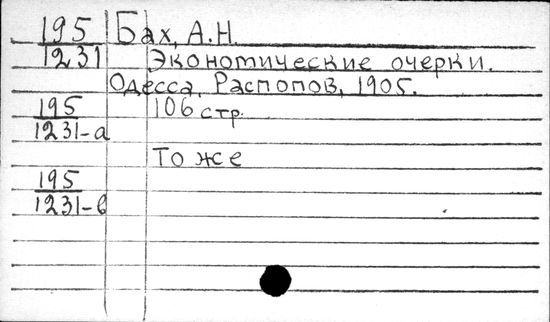 195 Бах, А.Н.
1231 Экономические очерки.
Одесса, Распопов, 1905.
195 106 стр.
1231-а
То же
195
1231-в